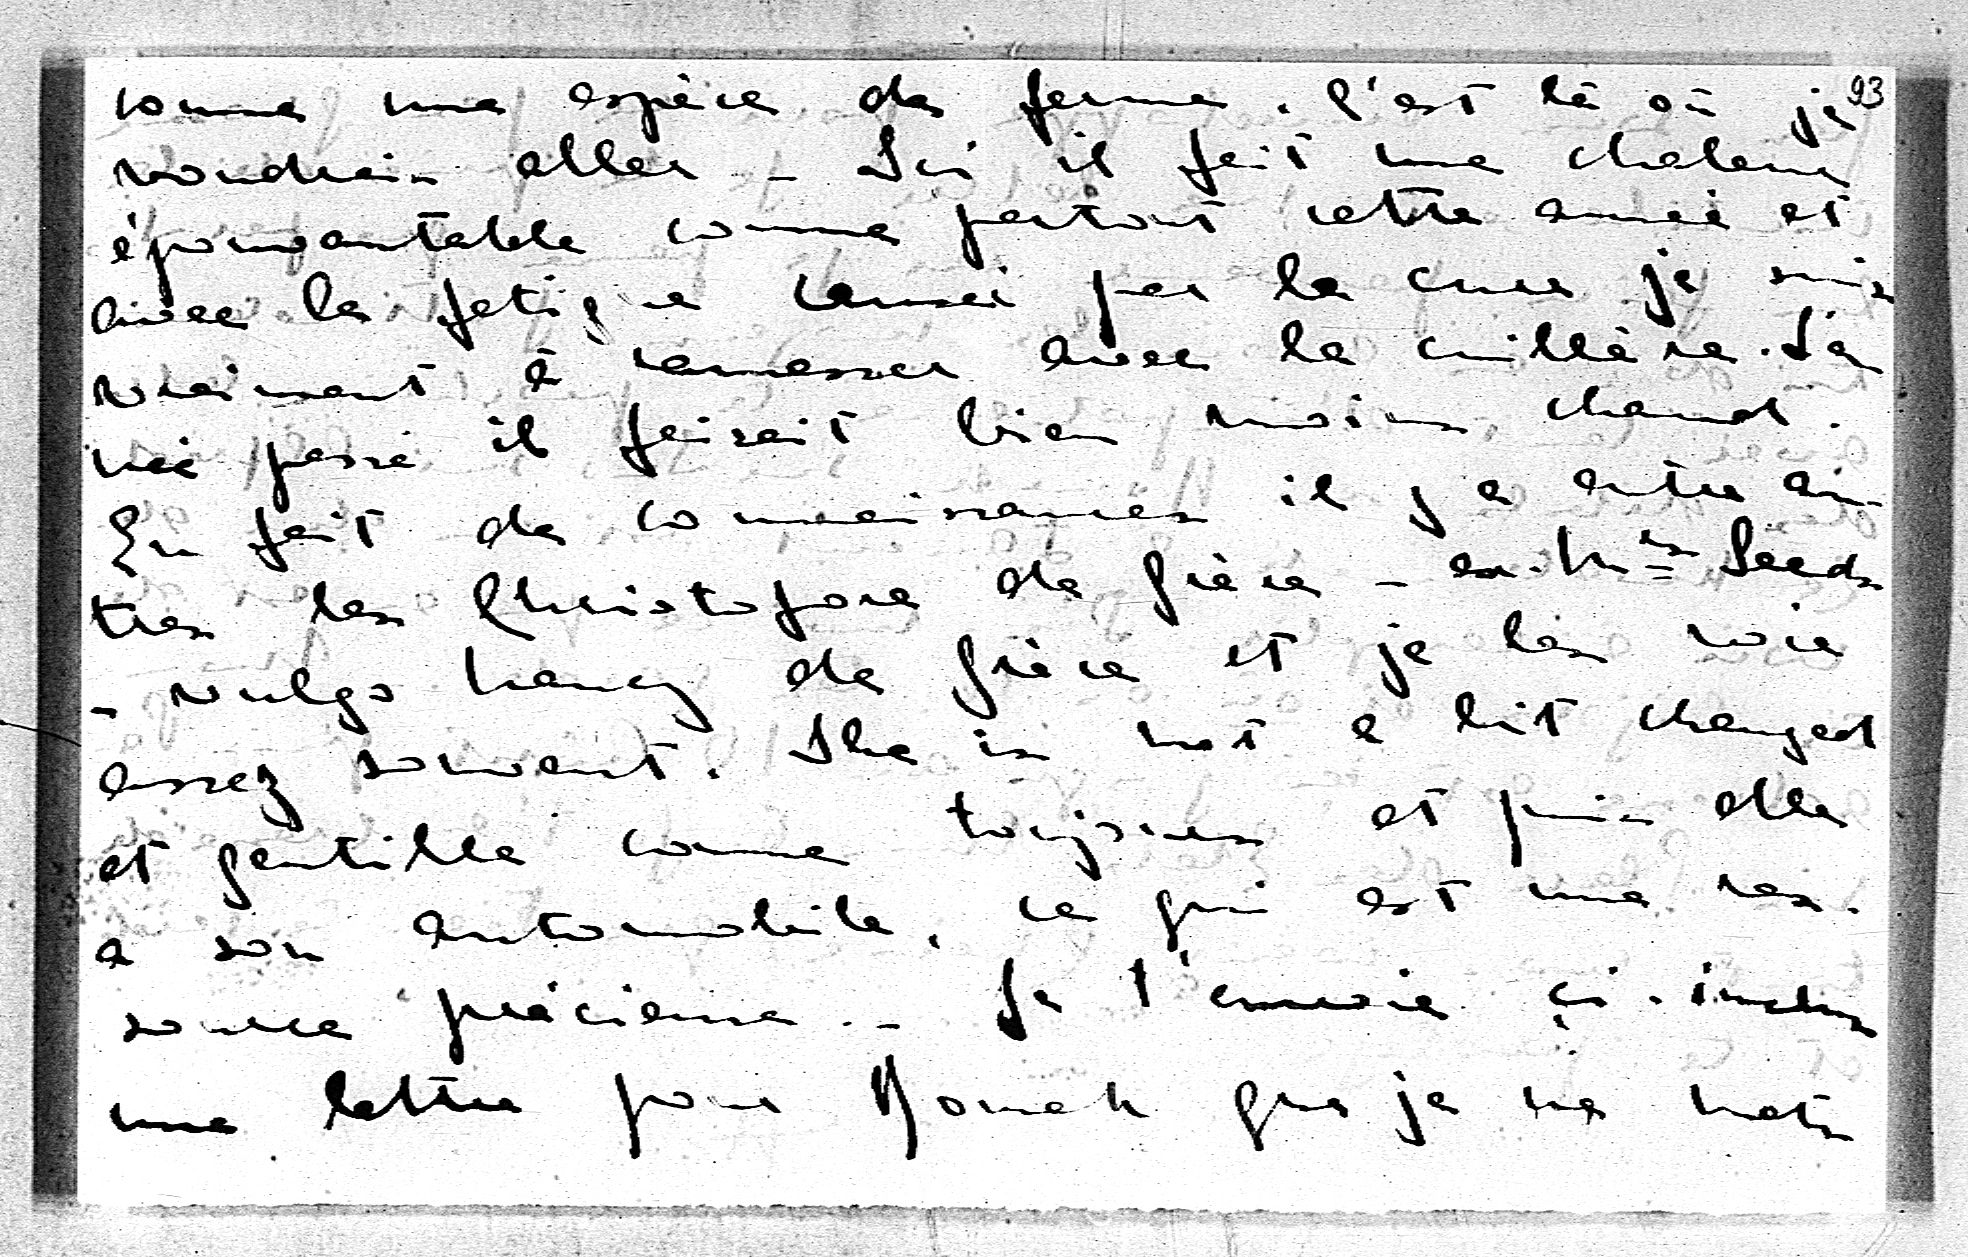 93
comme une espèce de ferme. C'est là où je
voudrais aller – Ici il fait une chaleur
épouvantable comme partout cette année et
avec la fatigue causée par la cure je suis
vraiment à ramasser avec la cuillère. L'an
née passé il faisait bien moins chaud.
En fait de connaissances il y a entre au-
tres les Christofore de Grèce – ex. Mrs Leeds
– vulgo Nancy de Grèce et je les vois
assez souvent. She is not a bit changed
et gentille comme toujours et puis elle
a son automobile, ce qui est une res-
source précieuse. – Je t'envoie ci-inclus
une lettre pour que je ne mets